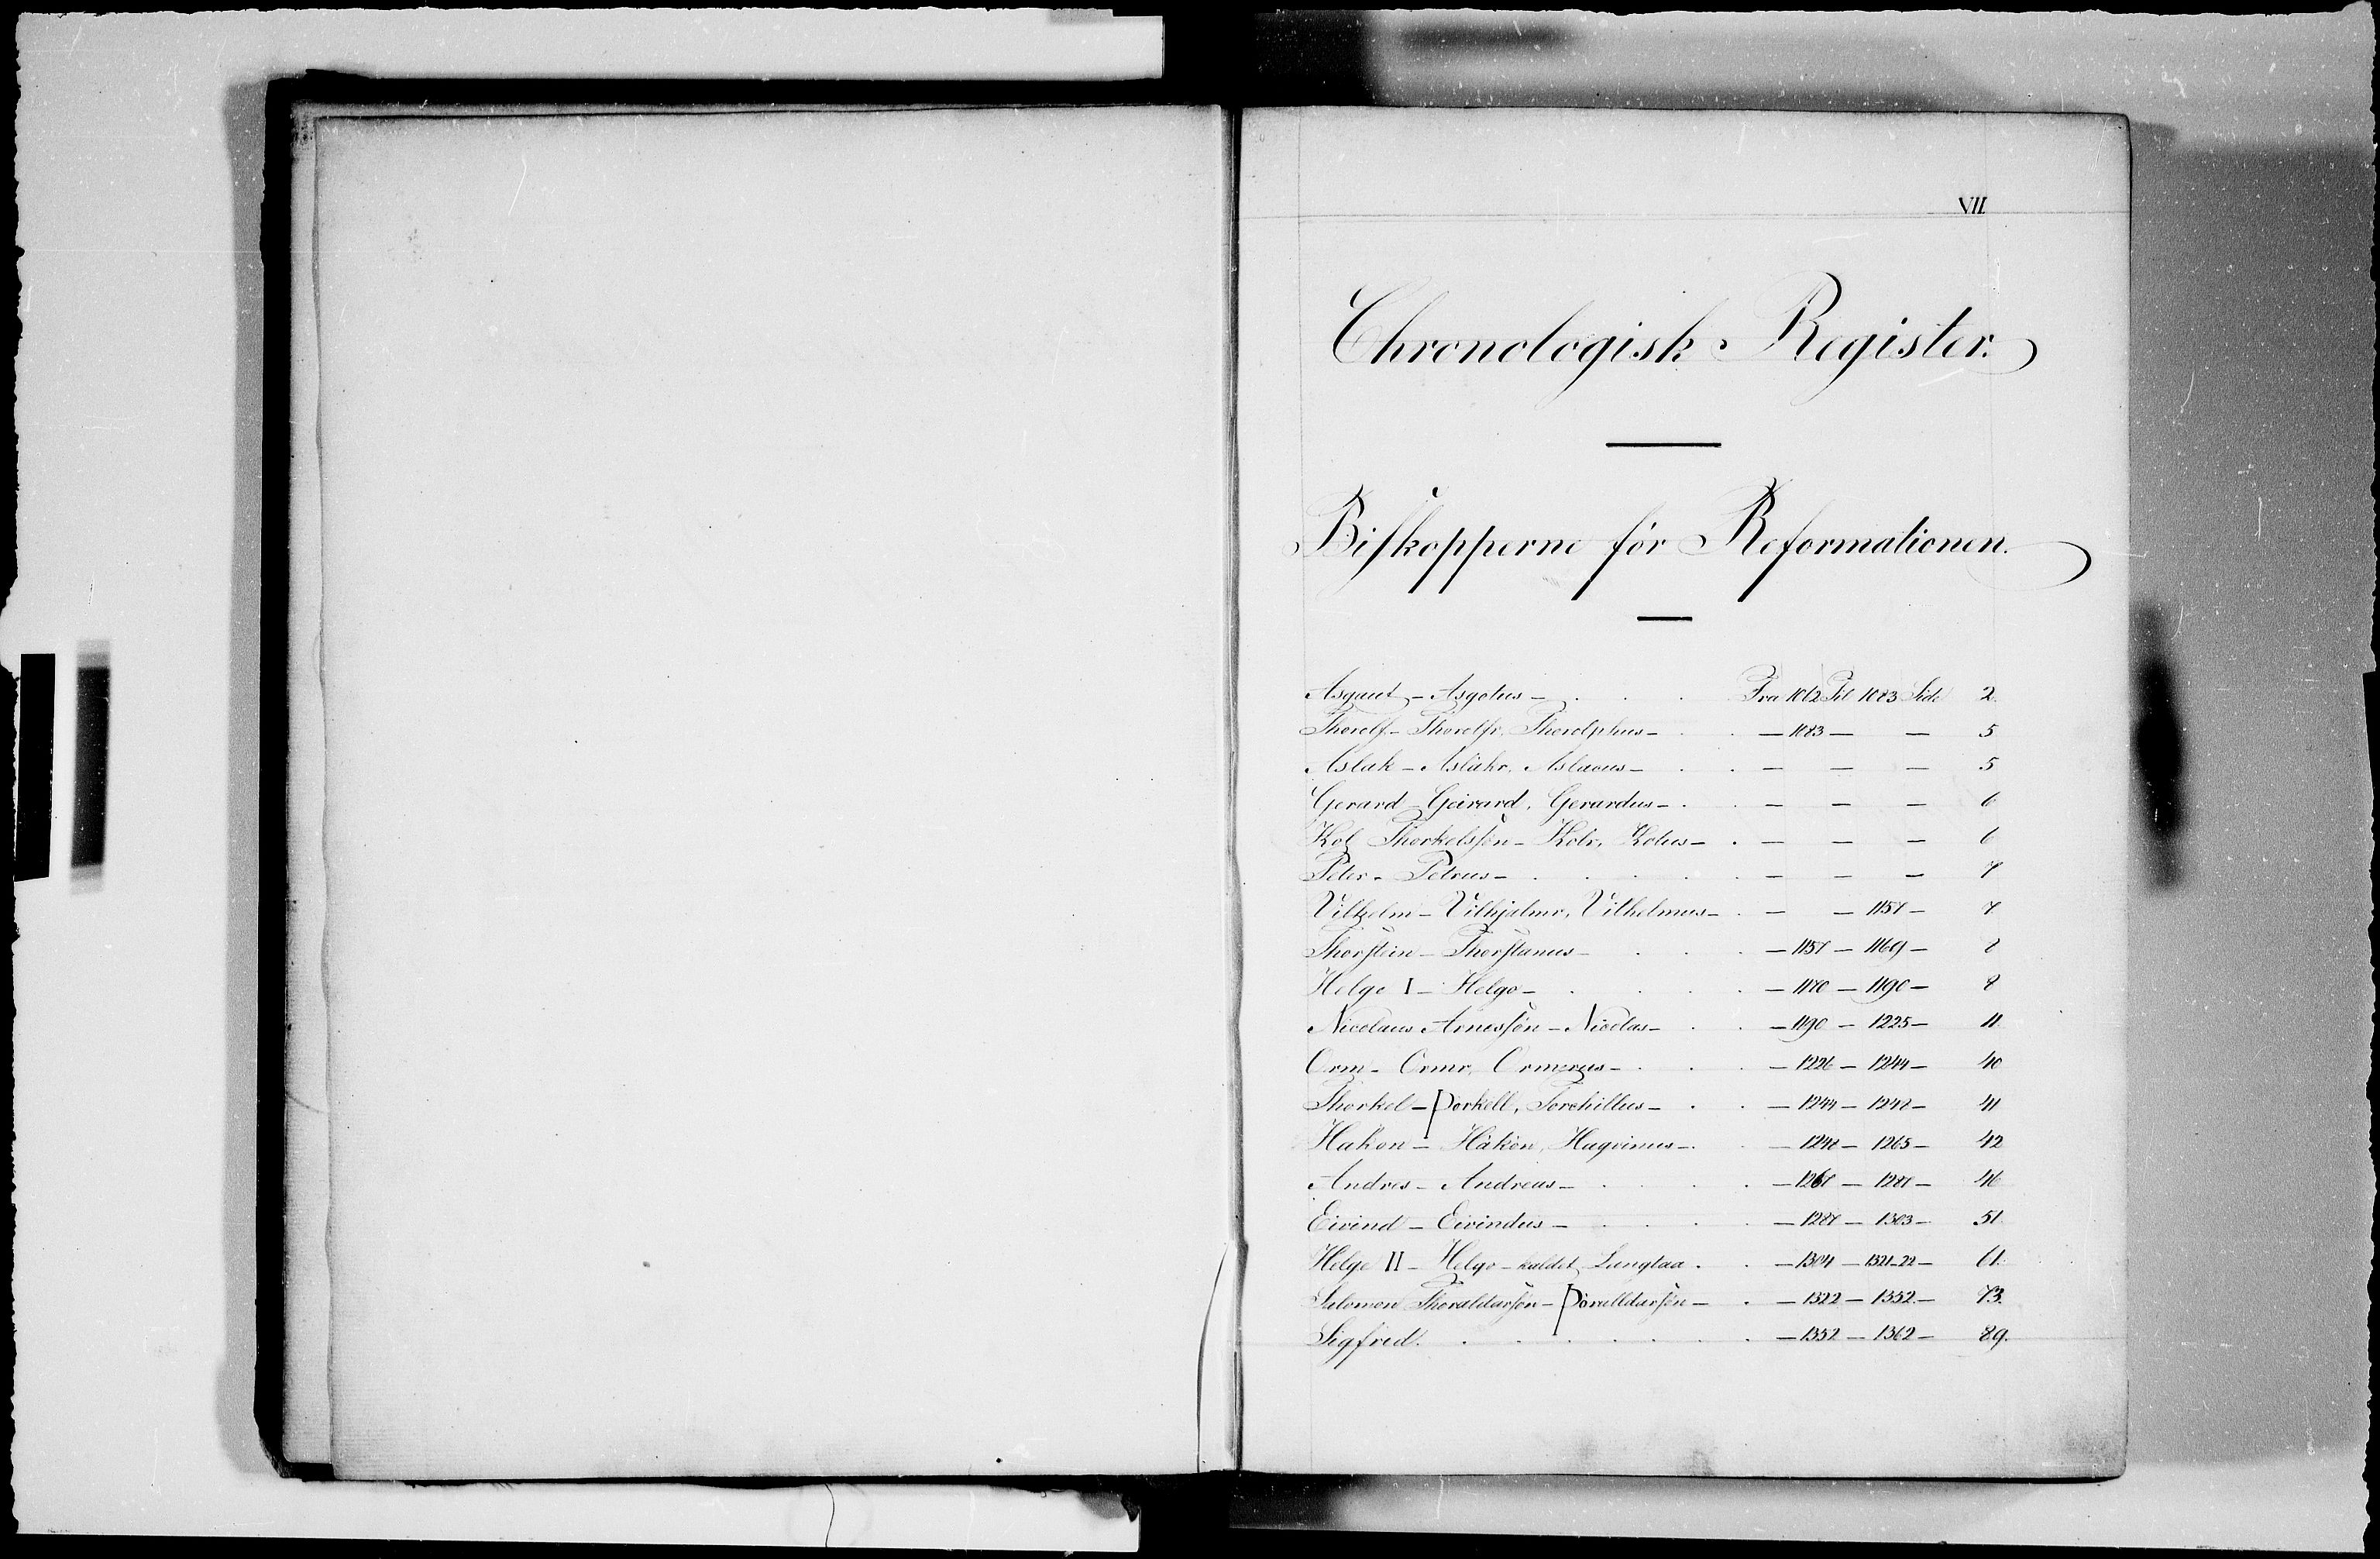 VII.
Chronologisk Register.
Biskopperne før Reformationen.
Asgaut - Asgotus - . . . Fra 1062 Til 1083 Side 2.
Thorolf - Thorolfr, Thorolphus - . . — 1083 — — 5
Aslak - Aslákr, Aslacus - . . — — — 5
Gerard - Geirard, Gerardus - . . — — — 6
Kol Thorkelssøn - Kolr, Kolus - . — — — 6
Peter - Petrus - . . . . . — — — 7
Vilhelm - Vilhjalmr, Vilhelmus - . — — 1157 — 7
Thorstein - Thorstanus - . . . — 1157 — 1169 — 8
Helge I - Helgo - . . . . — 1170 — 1190 — 8
Nicolaus Arnessøn - Nicolas - . . — 1190 — 1225 — 11
Orm - Ormr, Ormerus - . . . — 1226 — 1244 — 40
Thorkel - Þorkell, Torchillus - . . — 1244 — 1248 — 41
Hakon - Hákon, Haqvinus - . — 1248 — 1265 — 42
Andres - Andreas - . . . . — 1267 — 1287 — 46
Eivind - Eivindus - . . . . — 1287 — 1303 — 51.
Helge II - Helgo - kaldet Lunglaa . . — 1304 — 1321-22 — 61.
Salomon Thoraldarsøn - Þóralldarsøn - . — 1322 — 1352 — 73.
Sigfred. . . . . . . . — 1352 — 1362 — 89.